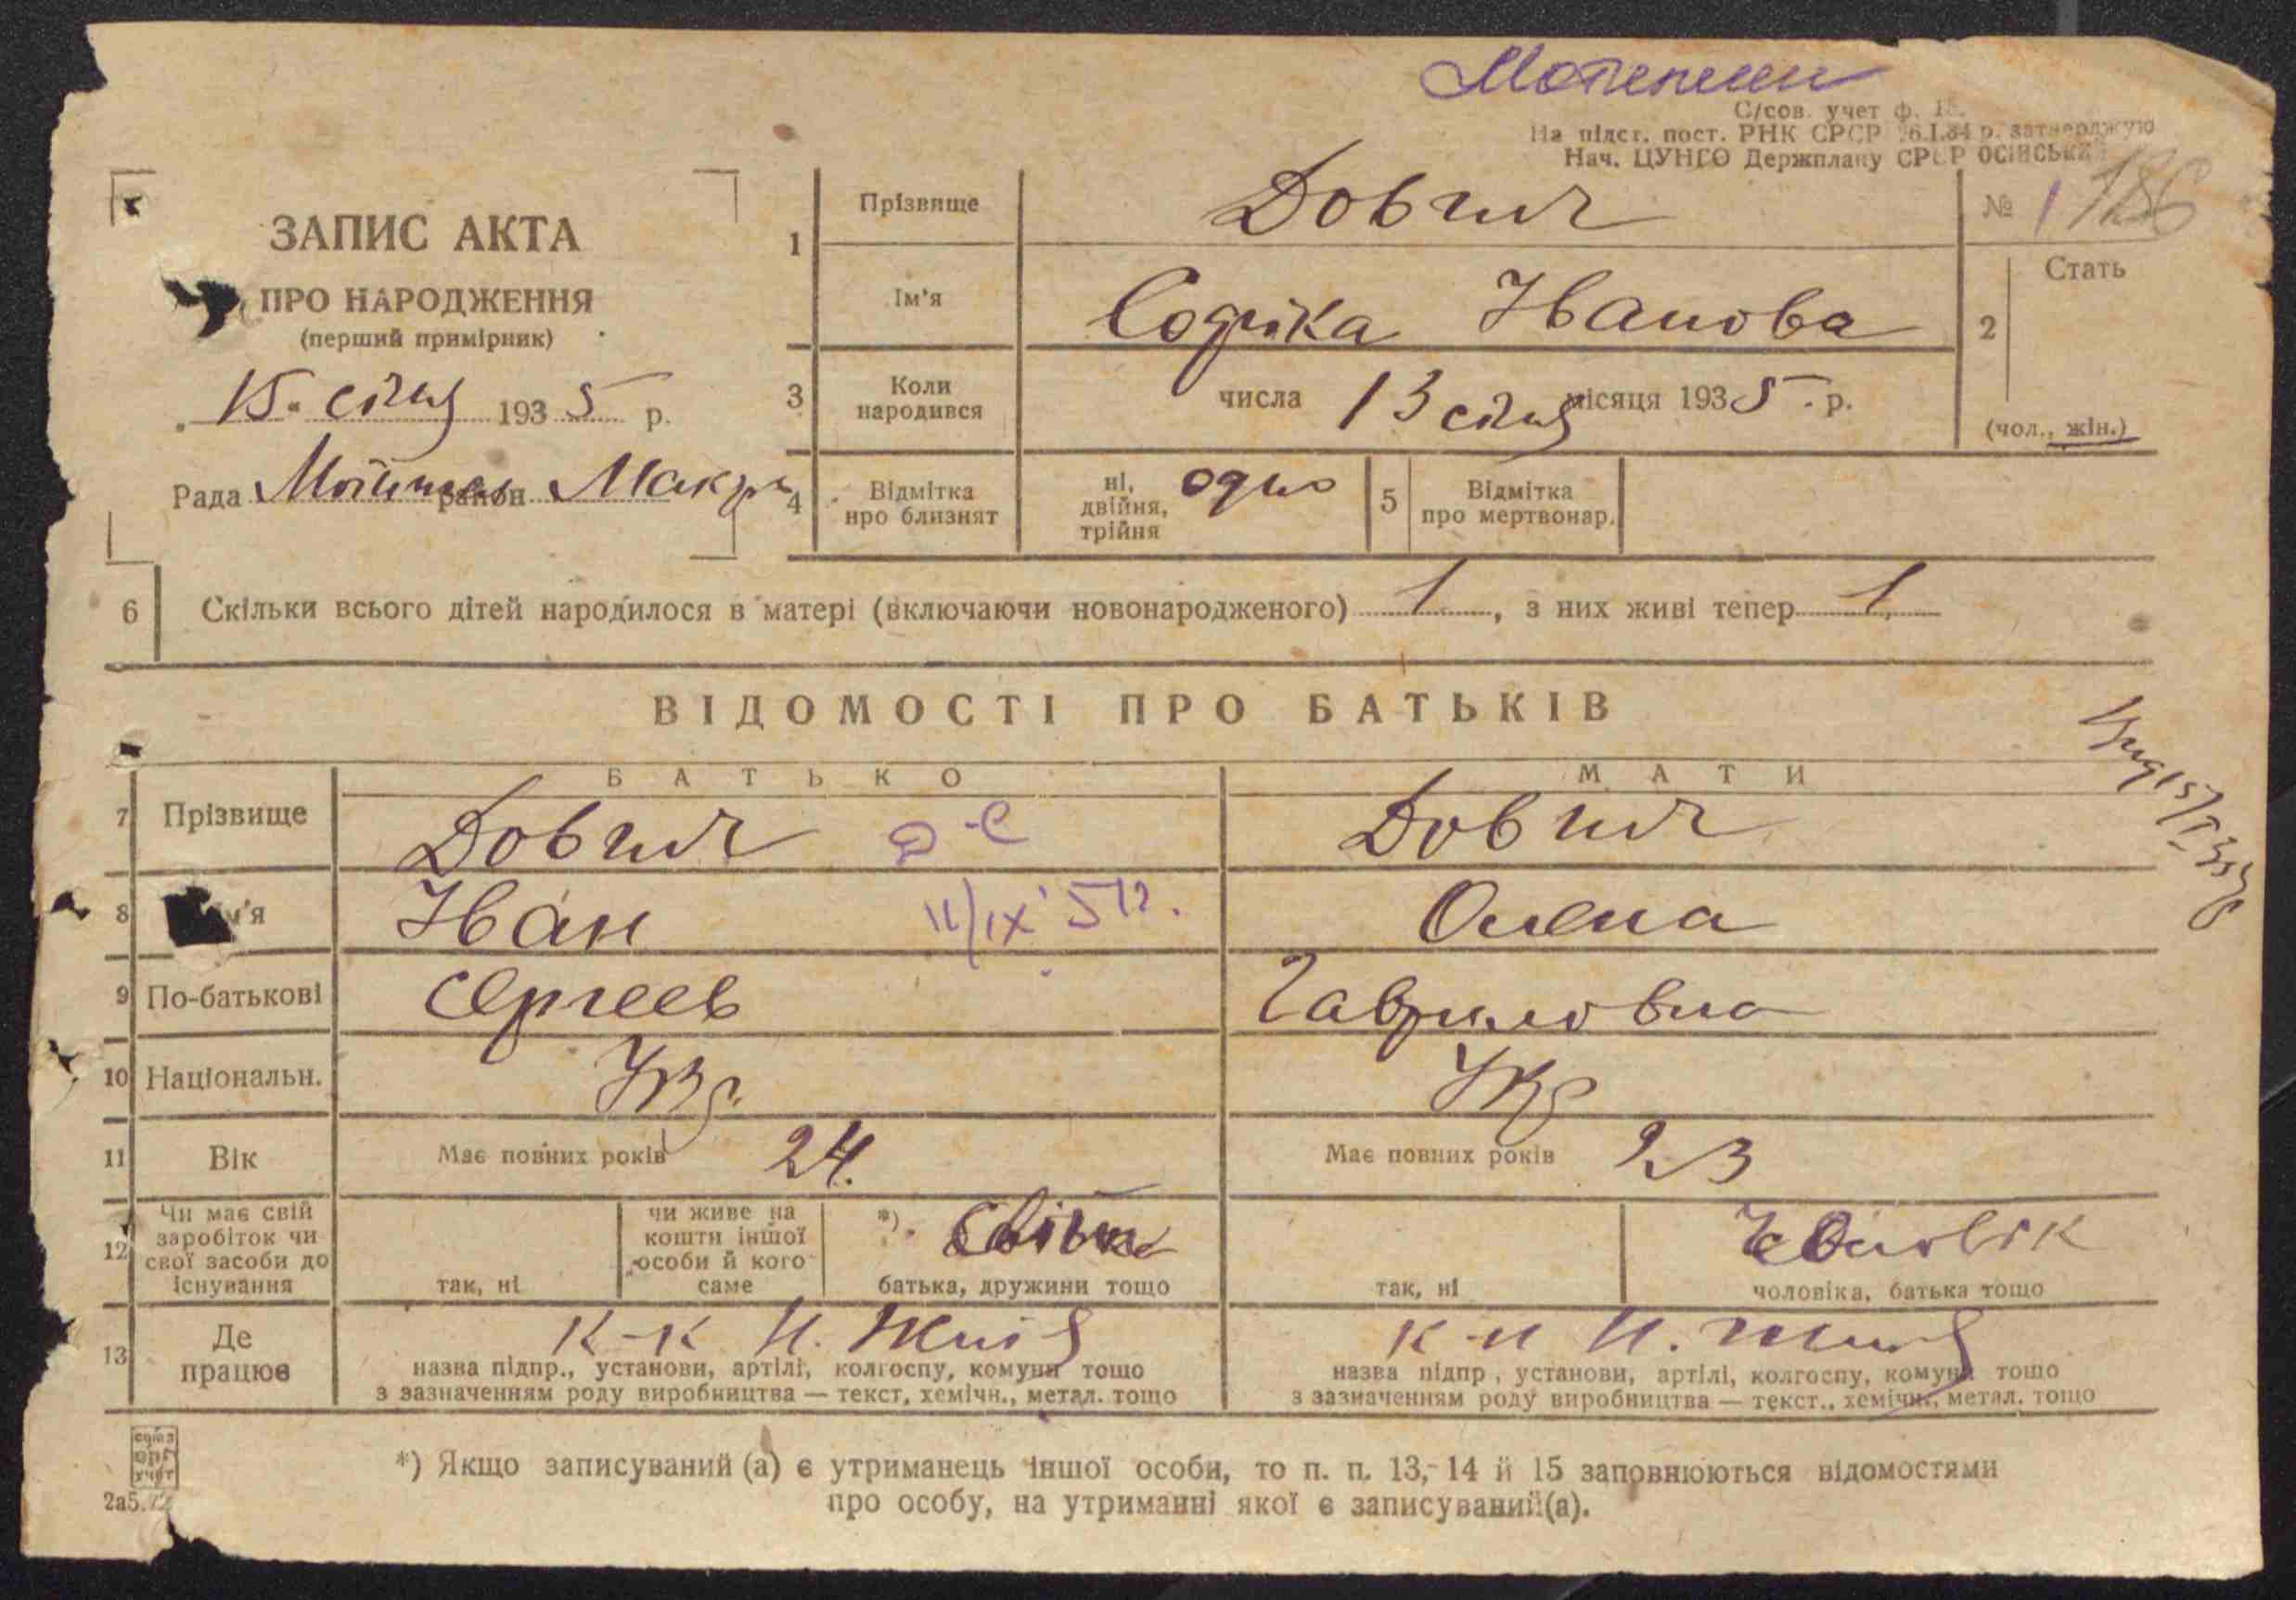 С/сов. учет ф.
На підст. пост. РНК СРСР 26.I.34 р. затверджую
Нач. ЦУНГО Держплану СРСР ОСІНСЬКИЙ
ЗАПИС АКТА
ПРО НАРОДЖЕННЯ
(перший примірник)
15 січня 1935 р.
Рада район Макр
1 Прізвище Довгич
№ 1 186
Ім'я Софіка Иванова
2 Стать
(чол., жін.)
3 Коли народився числа 13 січня місяця 1935 р.
4 Відмітка про близнят ні, двійня, трійня одно
5 Відмітка про мертвонар.
6 Скільки всього дітей народилося в матері (включаючи новонародженого) 1, з них живі тепер 1
ВІДОМОСТІ ПРО БАТЬКІВ
БАТЬКО МАТИ
7 Прізвище Довгич Довгич
8 Ім'я Иван 11/IX 51р. Олена
9 По-батькові Сергеев Гавриловна
10 Національн. Укр. Укр
11 Вік Має повних років 24. Має повних років 23
12 Чи має свій заробіток чи свої засоби до існування
так, ні
чи живе на кошти іншої особи й кого саме
*)
батька, дружини тощо
так, ні
Чоловік
чоловіка, батька тощо
13 Де працює
к-к Н. Життя к-п Н. Життя
назва підпр., установи, артілі, колгоспу, комуни тощо
з зазначенням роду виробництва — текст, хемічн., метал. тощо
назва підпр., установи, артілі, колгоспу, комуни тощо
з зазначенням роду виробництва — текст., хемічн., метал. тощо
союз
орг
учет
*) Якщо записуваний (а) є утриманець іншої особи, то п. п. 13, 14 й 15 заповнюються відомостями
про особу, на утриманні якої є записуваний(а).